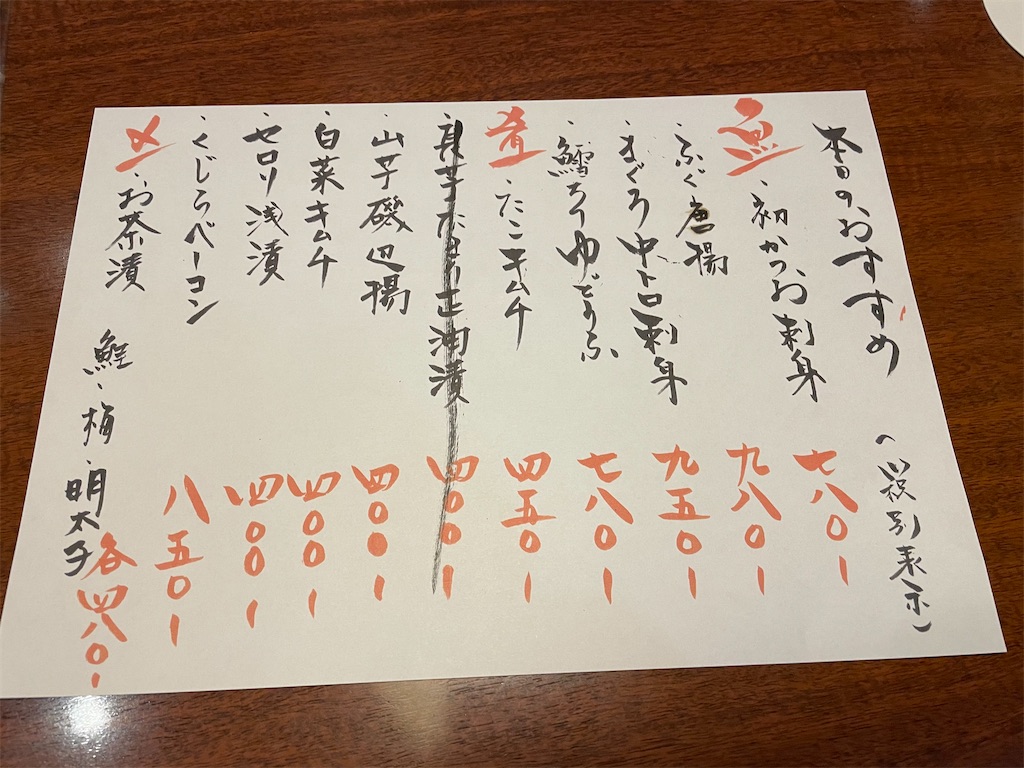 本日のおすすめ (税別表示)
魚 ・初かつお刺身 七八〇-
・ふぐ唐揚 九八〇-
・まぐろ中トロ刺身 九五〇-
・鱈ちりゆどうふ 七八〇-
肴 ・たこキムチ 四五〇-
・長芋たまり正油漬 四〇〇-
・山芋磯辺揚 四〇〇-
・白菜キムチ 四〇〇-
・セロリ浅漬 四〇〇-
・くじらベーコン 八五〇-
〆 ・お茶漬 鮭、梅、明太子 各四八〇-